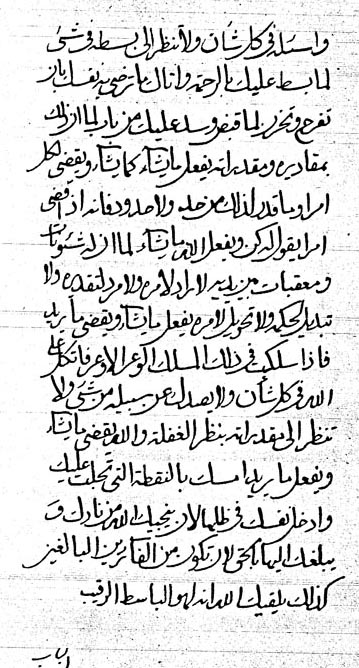 واسئله في كل شأن ولا تنظر الى بسطه في شئ
لما بسط عليك بالرحمة وانال ما ترضى به نفسك بان
تفرح وتحزن لما قبض وسد عليك من باب لما اراد الله
بمقاديره ومقدر انه يفعل ما يشاء كما يشاء ويقضى لكل
امر وما قدر لذلك من حد ولا حدود فانه اذا قضى
امرا يقول له كن ويفعل الله ما يشاء لما اراد
ومعقبات من يديه لا راد لامره ولا مرد لتقديره ولا
تبديل لحكمه ولا تحويل لامره يفعل ما يشاء ويقضى ما يريد
فاذا سلكت في ذلك المسلك الوعر الاوعر فاتكل على
الله في كل شأن ولا يصدك عن سبيله من شئ ولا
تنظر الى مقدر انه بنظر الغفلة والله يقضى ما يشاء
ويفعل ما يريد امسك بالنقطة التي تجلت عليك
وادخل نفسك في ظلها لان ينجيك الله من نارك و
يبلغك اليها بالحق لان تكون من الفائزين البالغين
كذلك يلقيك الله انه لهو الباسط الرقيب